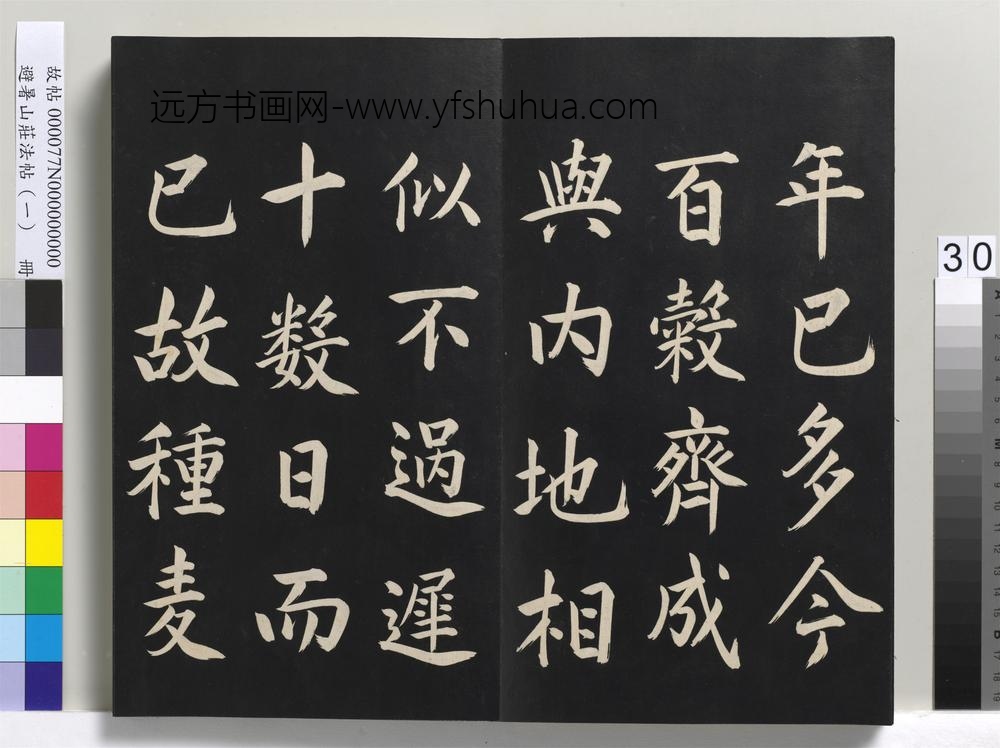 远方书画网-www.yfshuhua.com
年已多今
百穀齊成
與内地相
似不過遲
十数日而
已故種麦
故帖 000077N000000000
避暑山莊法帖（一） 冊
30